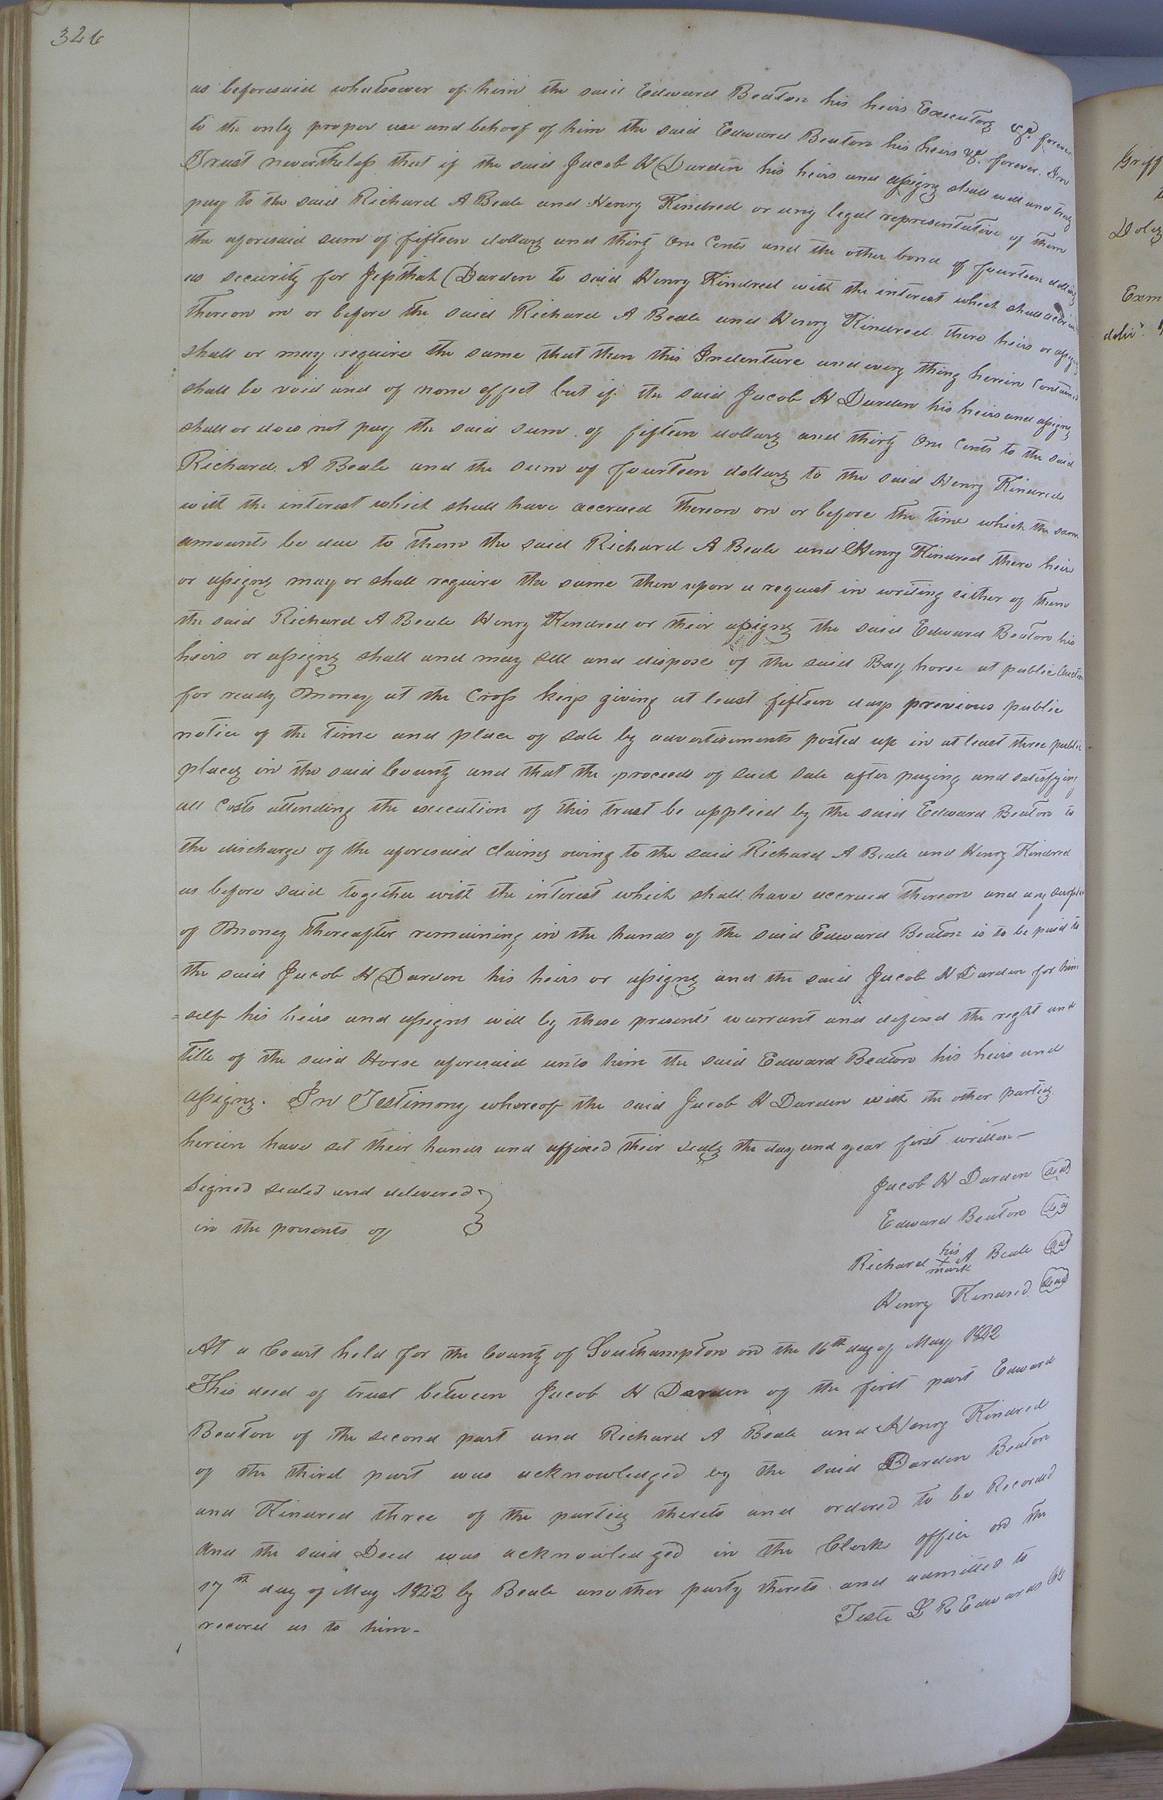 326
as beforesaid whatsoever of him the said Edward Beaton his heirs Executors &c. forever
to the only proper use and behoof of him the said Edward Beaton his heirs &c. forever. In
Trust nevertheless that if the said Jacob H Darden his heirs and assigns shall well and truly
pay to the said Richard A Beale and Henry Kindred or any legal representative of them
the aforesaid sum of fifteen dollars and thirty One Cents and the other bond of fourteen dollars
as security for Jepthah Darden to said Henry Kindred with the interest which shall
Thereon on or before the said Richard A Beale and Henry Kindred there heirs or assigns
shall or may require the same that then this Indenture and every thing herein Contained
shall be void and of none effect but if the said Jacob H Darden his heirs and assigns
shall or does not pay the said sum of fifteen dollars and thirty One Cents to the said
Richard A Beale and the sum of fourteen dollars to the said Henry Kindred
with the interest which shall have accrued Thereon on or before the time which the same
amounts be due to them the said Richard A Beale and Henry Kindred there heirs
or assigns may or shall require the same then upon a request in writing either of them
the said Richard A Beale Henry Kindred or their assigns the said Edward Beaton his
heirs or assigns shall and may sell and dispose of the said Bay horse at public Auction
for ready Money at the Cross keys giving at least fifteen days previous public
notice of the time and place of sale by advertisements posted up in at least three public
places in the said County and that the proceeds of such sale after paying and satisfying
all Costs attending the execution of this trust be applied by the said Edward Beaton to
the discharge of the aforesaid claims owing to the said Richard A Beale and Henry Kindred
as before said together with the interest which shall have accrued Thereon and any surplus
of Money thereafter remaining in the hands of the said Edward Beaton is to be paid to
the said Jacob H Darden his heirs or assigns and the said Jacob H Darden for him
=self his heirs and assigns will by these presents warrant and defend the right and
title of the said Horse aforesaid unto him the said Edward Beaton his heirs and
assigns. In Testimony whereof the said Jacob H Darden with the other parties
herein have set their hands and affixed their seals the day and year first written—
Signed sealed and delivered
in the presents of
Jacob H Darden Seal
Edward Beaton Seal
Richard his A Beale Seal
mark
Henry Kindred Seal
At a Court held for the County of Southampton on the 16th day of May 1822
This deed of trust between Jacob H Darden of the first part Edward
Beaton of the second part and Richard A Beale and Henry Kindred
of the third part was acknowledged by the said Darden Beaton
and Kindred three of the parties thereto and ordered to be Recorded
And the said Deed was acknowledged in the Clerks office on the
17th day of May 1822 by Beale another party thereto and admitted to
record as to him-
Teste L R Edwards
Griff
Doles
Exm
deliv.